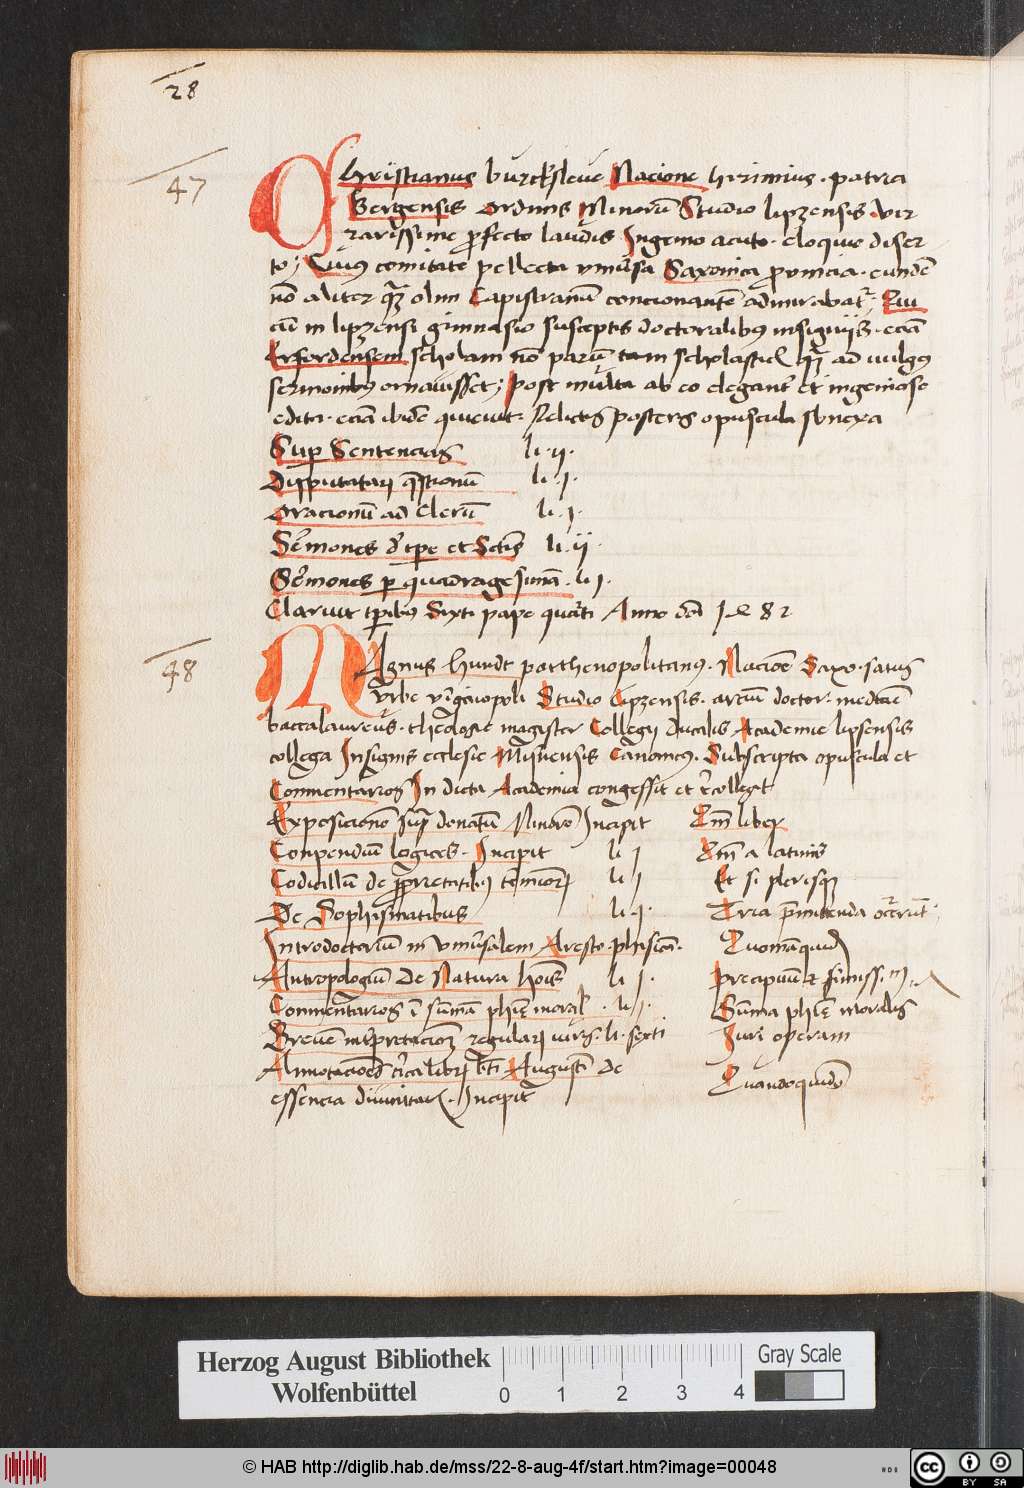 28
47
Christianus burcksleve Nacione hirimius · patria
Bergensis ordinis Minorū Studio lipzensis vir
rarissime ꝓfecto laudis Ingenio acuto · eloquio diser
to; Cuius comitate pellecta vniūsa Saxonica ꝓvincia · eundē
nō aliter qȝ olim Capistranū concionantē admirabatʳ; Qui
cū in lipzensi gimnasio susceptis doctoralibus insigniis · eciā
Erfordensem scholam nō parū tam scholasticis qȝ ad vulgus
sermonibus ornavisset; post multa ab eo eleganter et ingeniose
edita · eciā ibidē quievit. Relictis posteris opuscula subnexa
Sup Sentencias li · ij ·
Disputatarū q̄stionū li · j ·
Oracionū ad Clerū li · j ·
Sermones de tp̄e et Sctis li · ij ·
Sermones p quadragesimā · li j ·
Claruit tp̄ibus Sixti pape quarti Anno dn̄i 1482
48
MAgnus hundt parthenopolitanus · Nacione Saxo · satus
vrbe virginopoli Studio Lipzensis · arcium doctor · medicine
baccalaureus · theologie magister Collegij ducalis Academie lipsensis
collega Insignis ecclesie Misnensis Canonicus. Subscripta opuscula et
Commentarios In dicta Academia congessit et recollegit
Exposicionē sup donatū Minorē Incipit Cum liber
Conpendiū logices · Incipit li j Cum a latinis
Codicillū de ꝓprietatibus terminorum li j Et si plerisque
De Sophismatibus li · j · Tria premittenda occurrunt
Introductariū in vniversalem Aresto · phisicā · Quoniā quid
Antropologiū De Natura hoīs li j · precipuū
Commentarios ī sūmā phīe moralis · li j · Sūma phīe moralis
Brevē interpretacionē regularū virg · li · sexti Iuri operam
Annotaciones circa libros bti Augusti de
essencia divinitatis · Incipit Quandoquidē
Herzog August Bibliothek
Wolfenbüttel
0 1 2 3 4
Gray Scale
© HAB http://diglib.hab.de/mss/22-8-aug-4f/start.htm?image=00048
HAB
cc BY SA